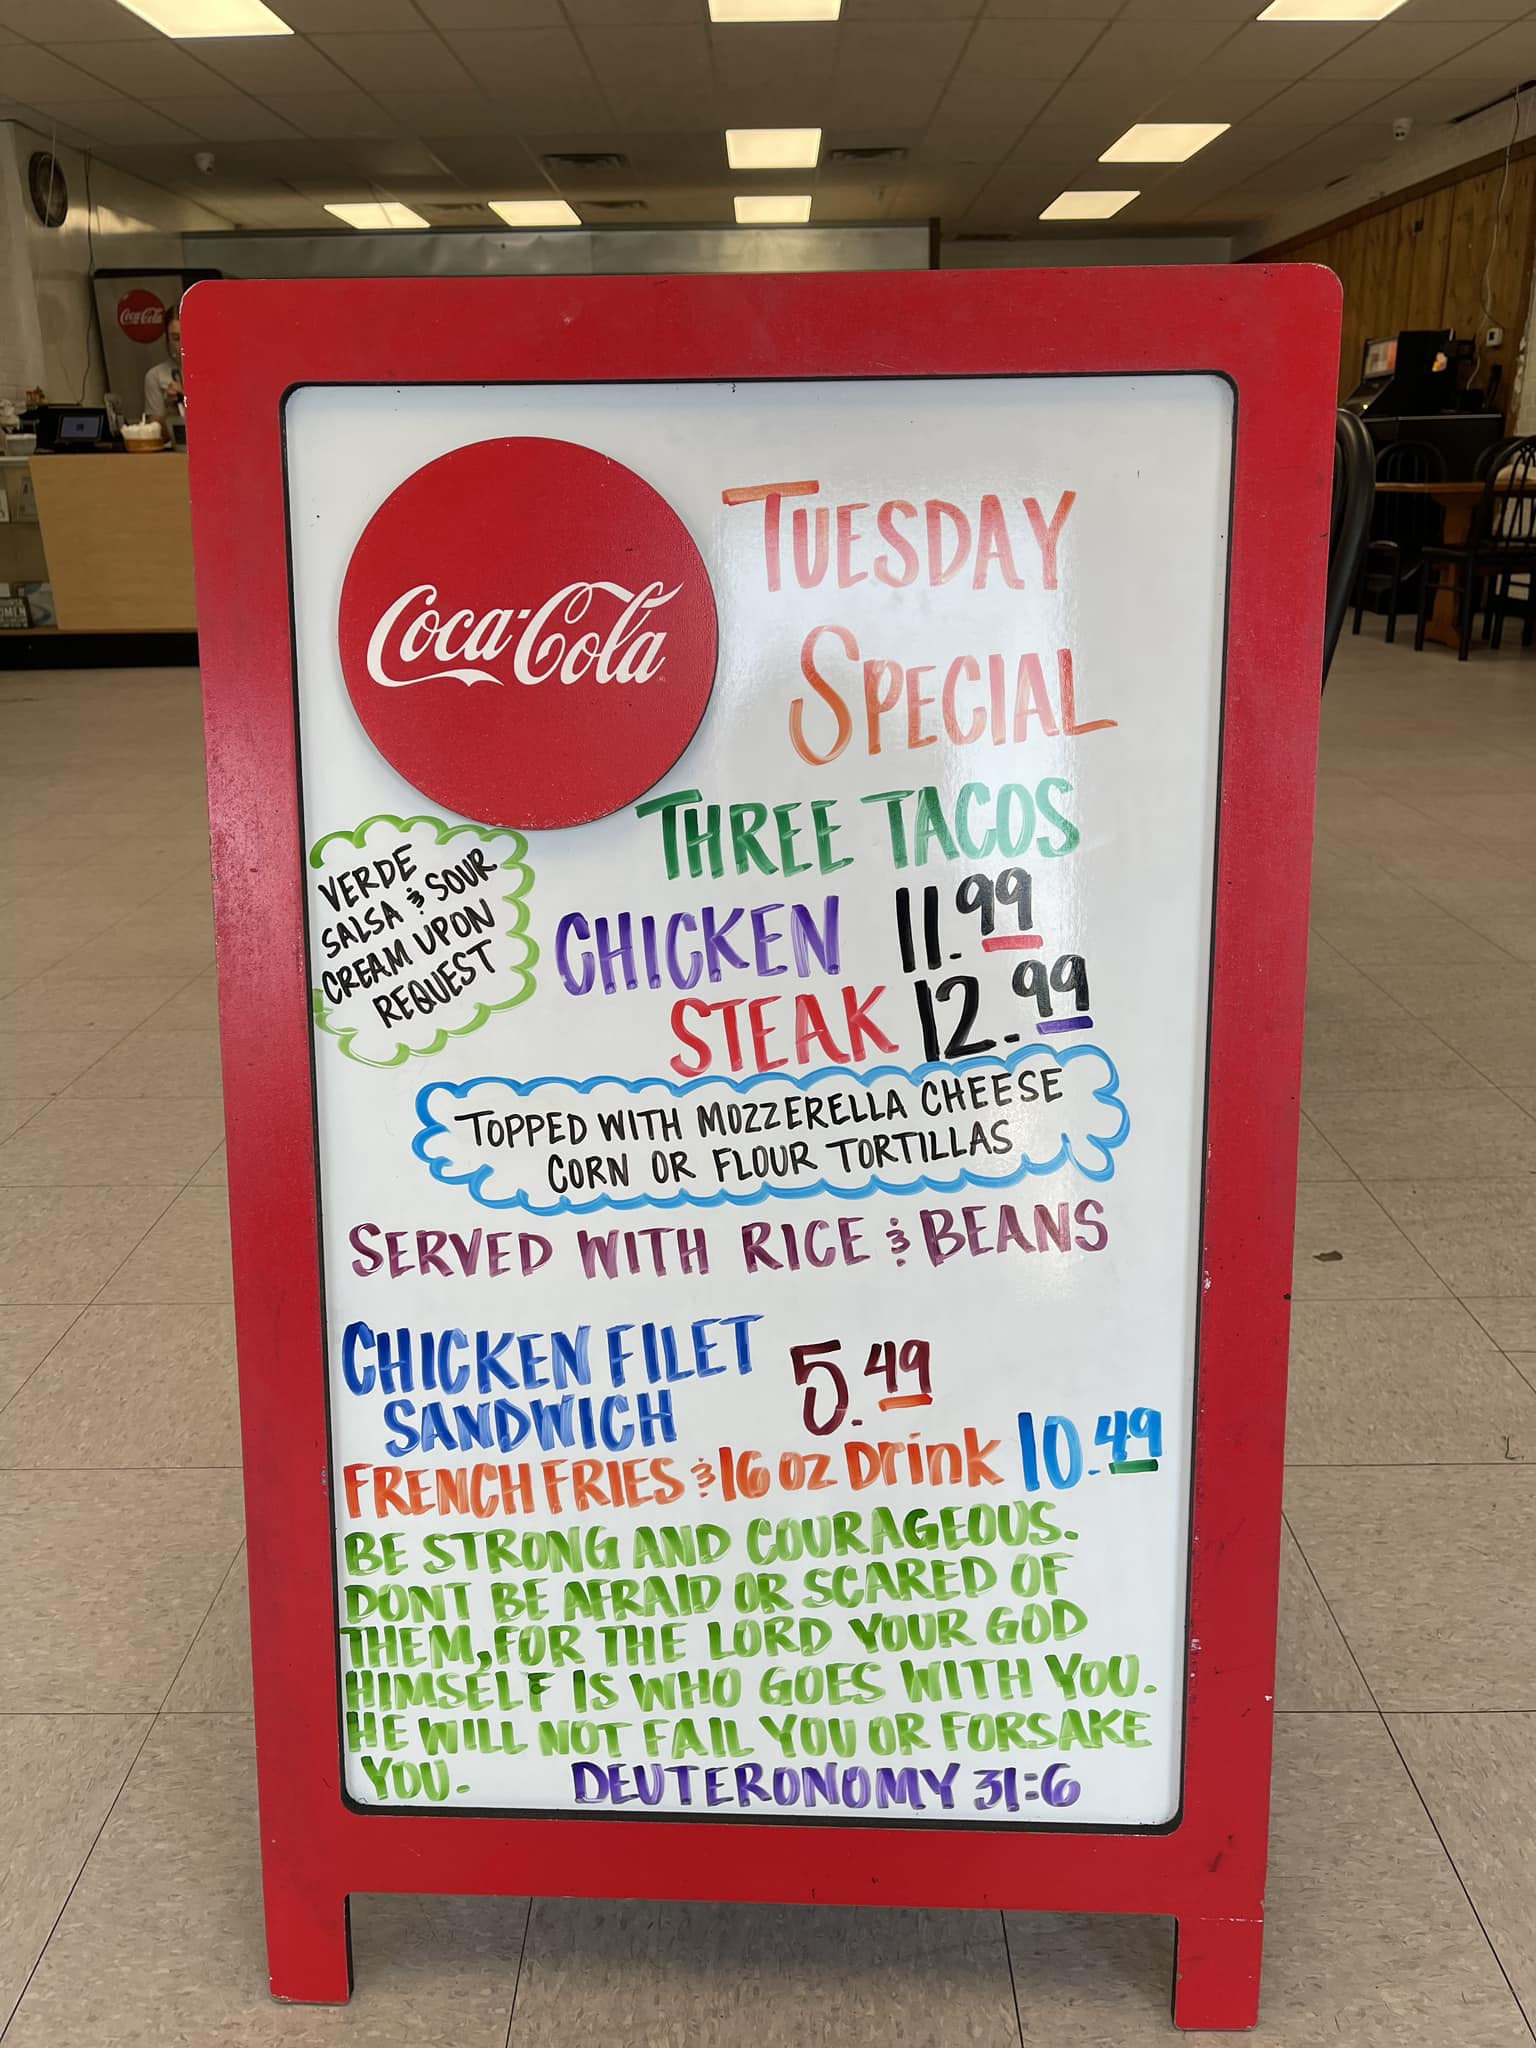 Coca-Cola
Coca-Cola
TUESDAY
SPECIAL
THREE TACOS
VERDE
SALSA & SOUR
CREAM UPON
REQUEST
CHICKEN 11.99
STEAK 12.99
TOPPED WITH MOZZERELLA CHEESE
CORN OR FLOUR TORTILLAS
SERVED WITH RICE & BEANS
CHICKEN FILET
SANDWICH 5.49
FRENCH FRIES & 16 OZ Drink 10.49
BE STRONG AND COURAGEOUS.
DONT BE AFRAID OR SCARED OF
THEM, FOR THE LORD YOUR GOD
HIMSELF IS WHO GOES WITH YOU.
HE WILL NOT FAIL YOU OR FORSAKE
YOU. DEUTERONOMY 31:6